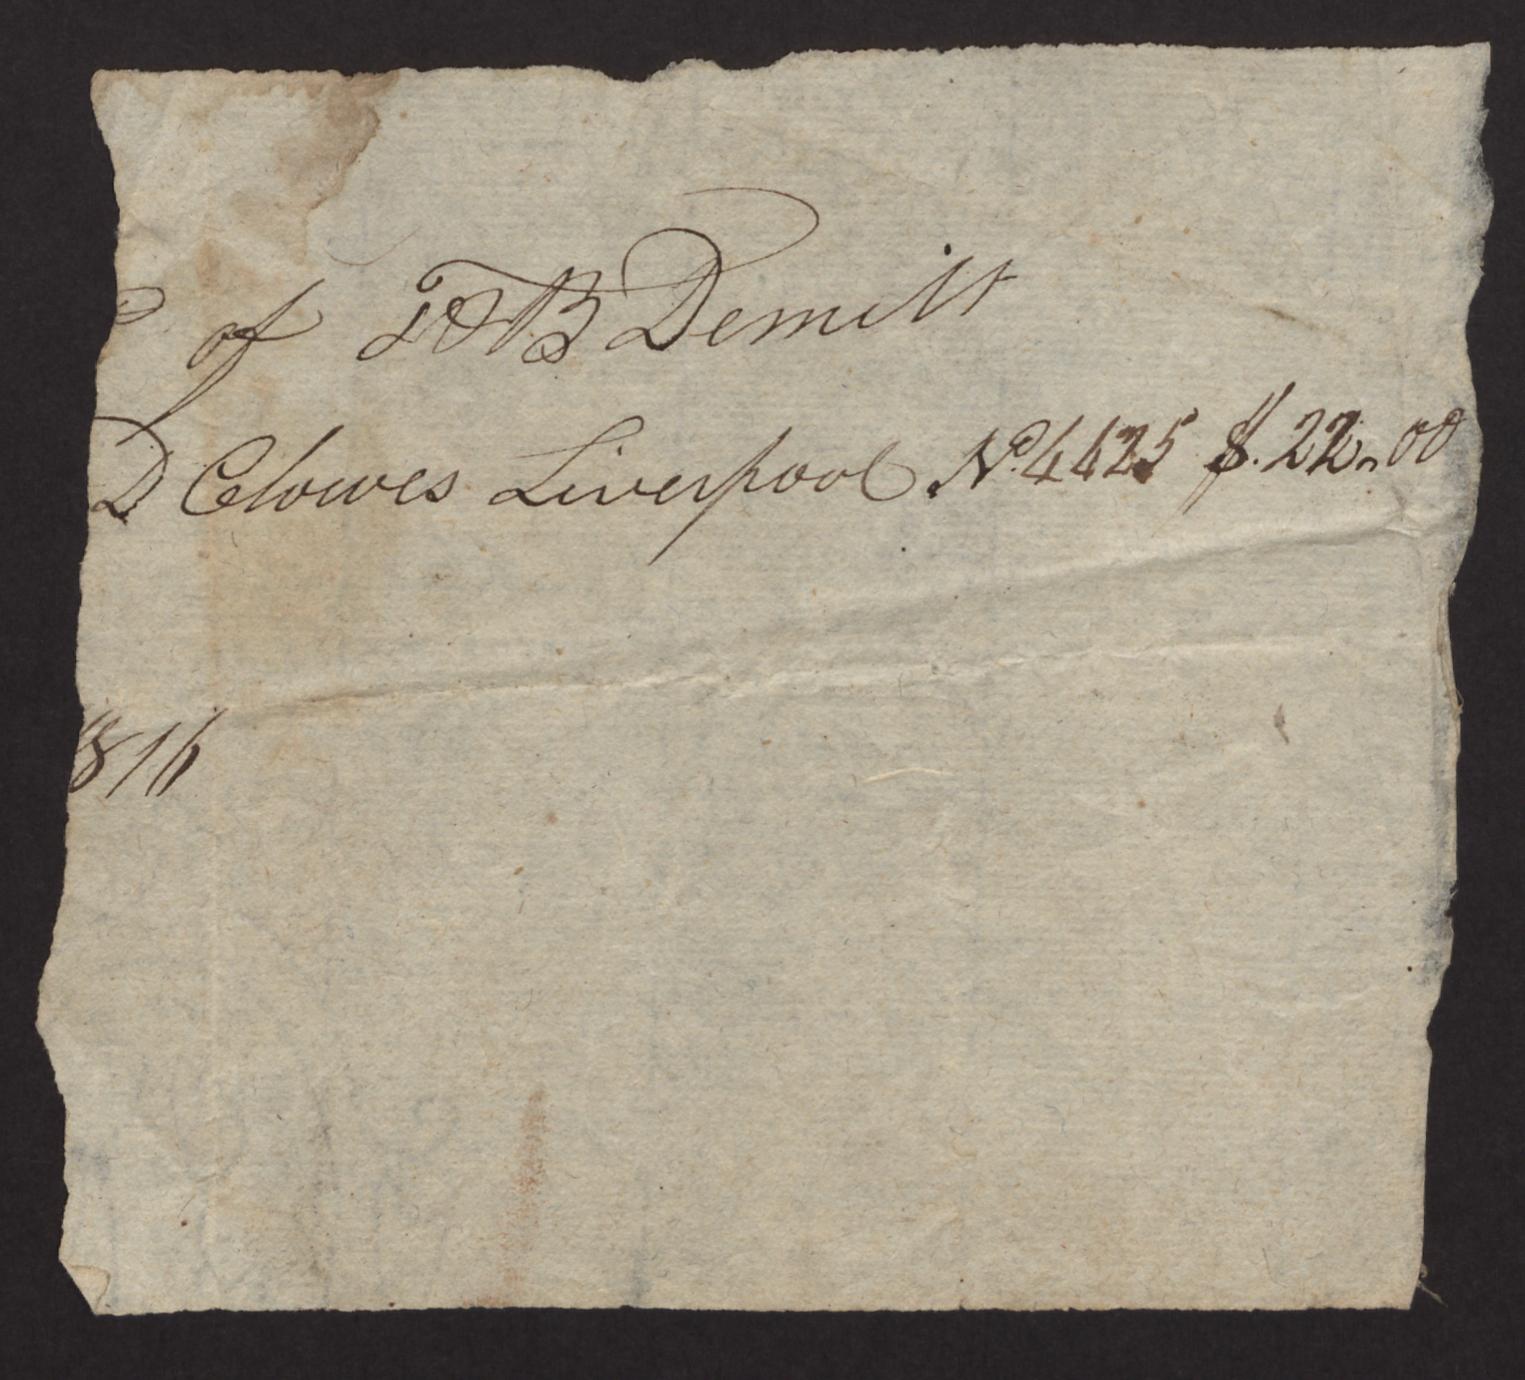 of T & B Demilt
D Clowes Liverpool No. 4425 $. 22.00
1816